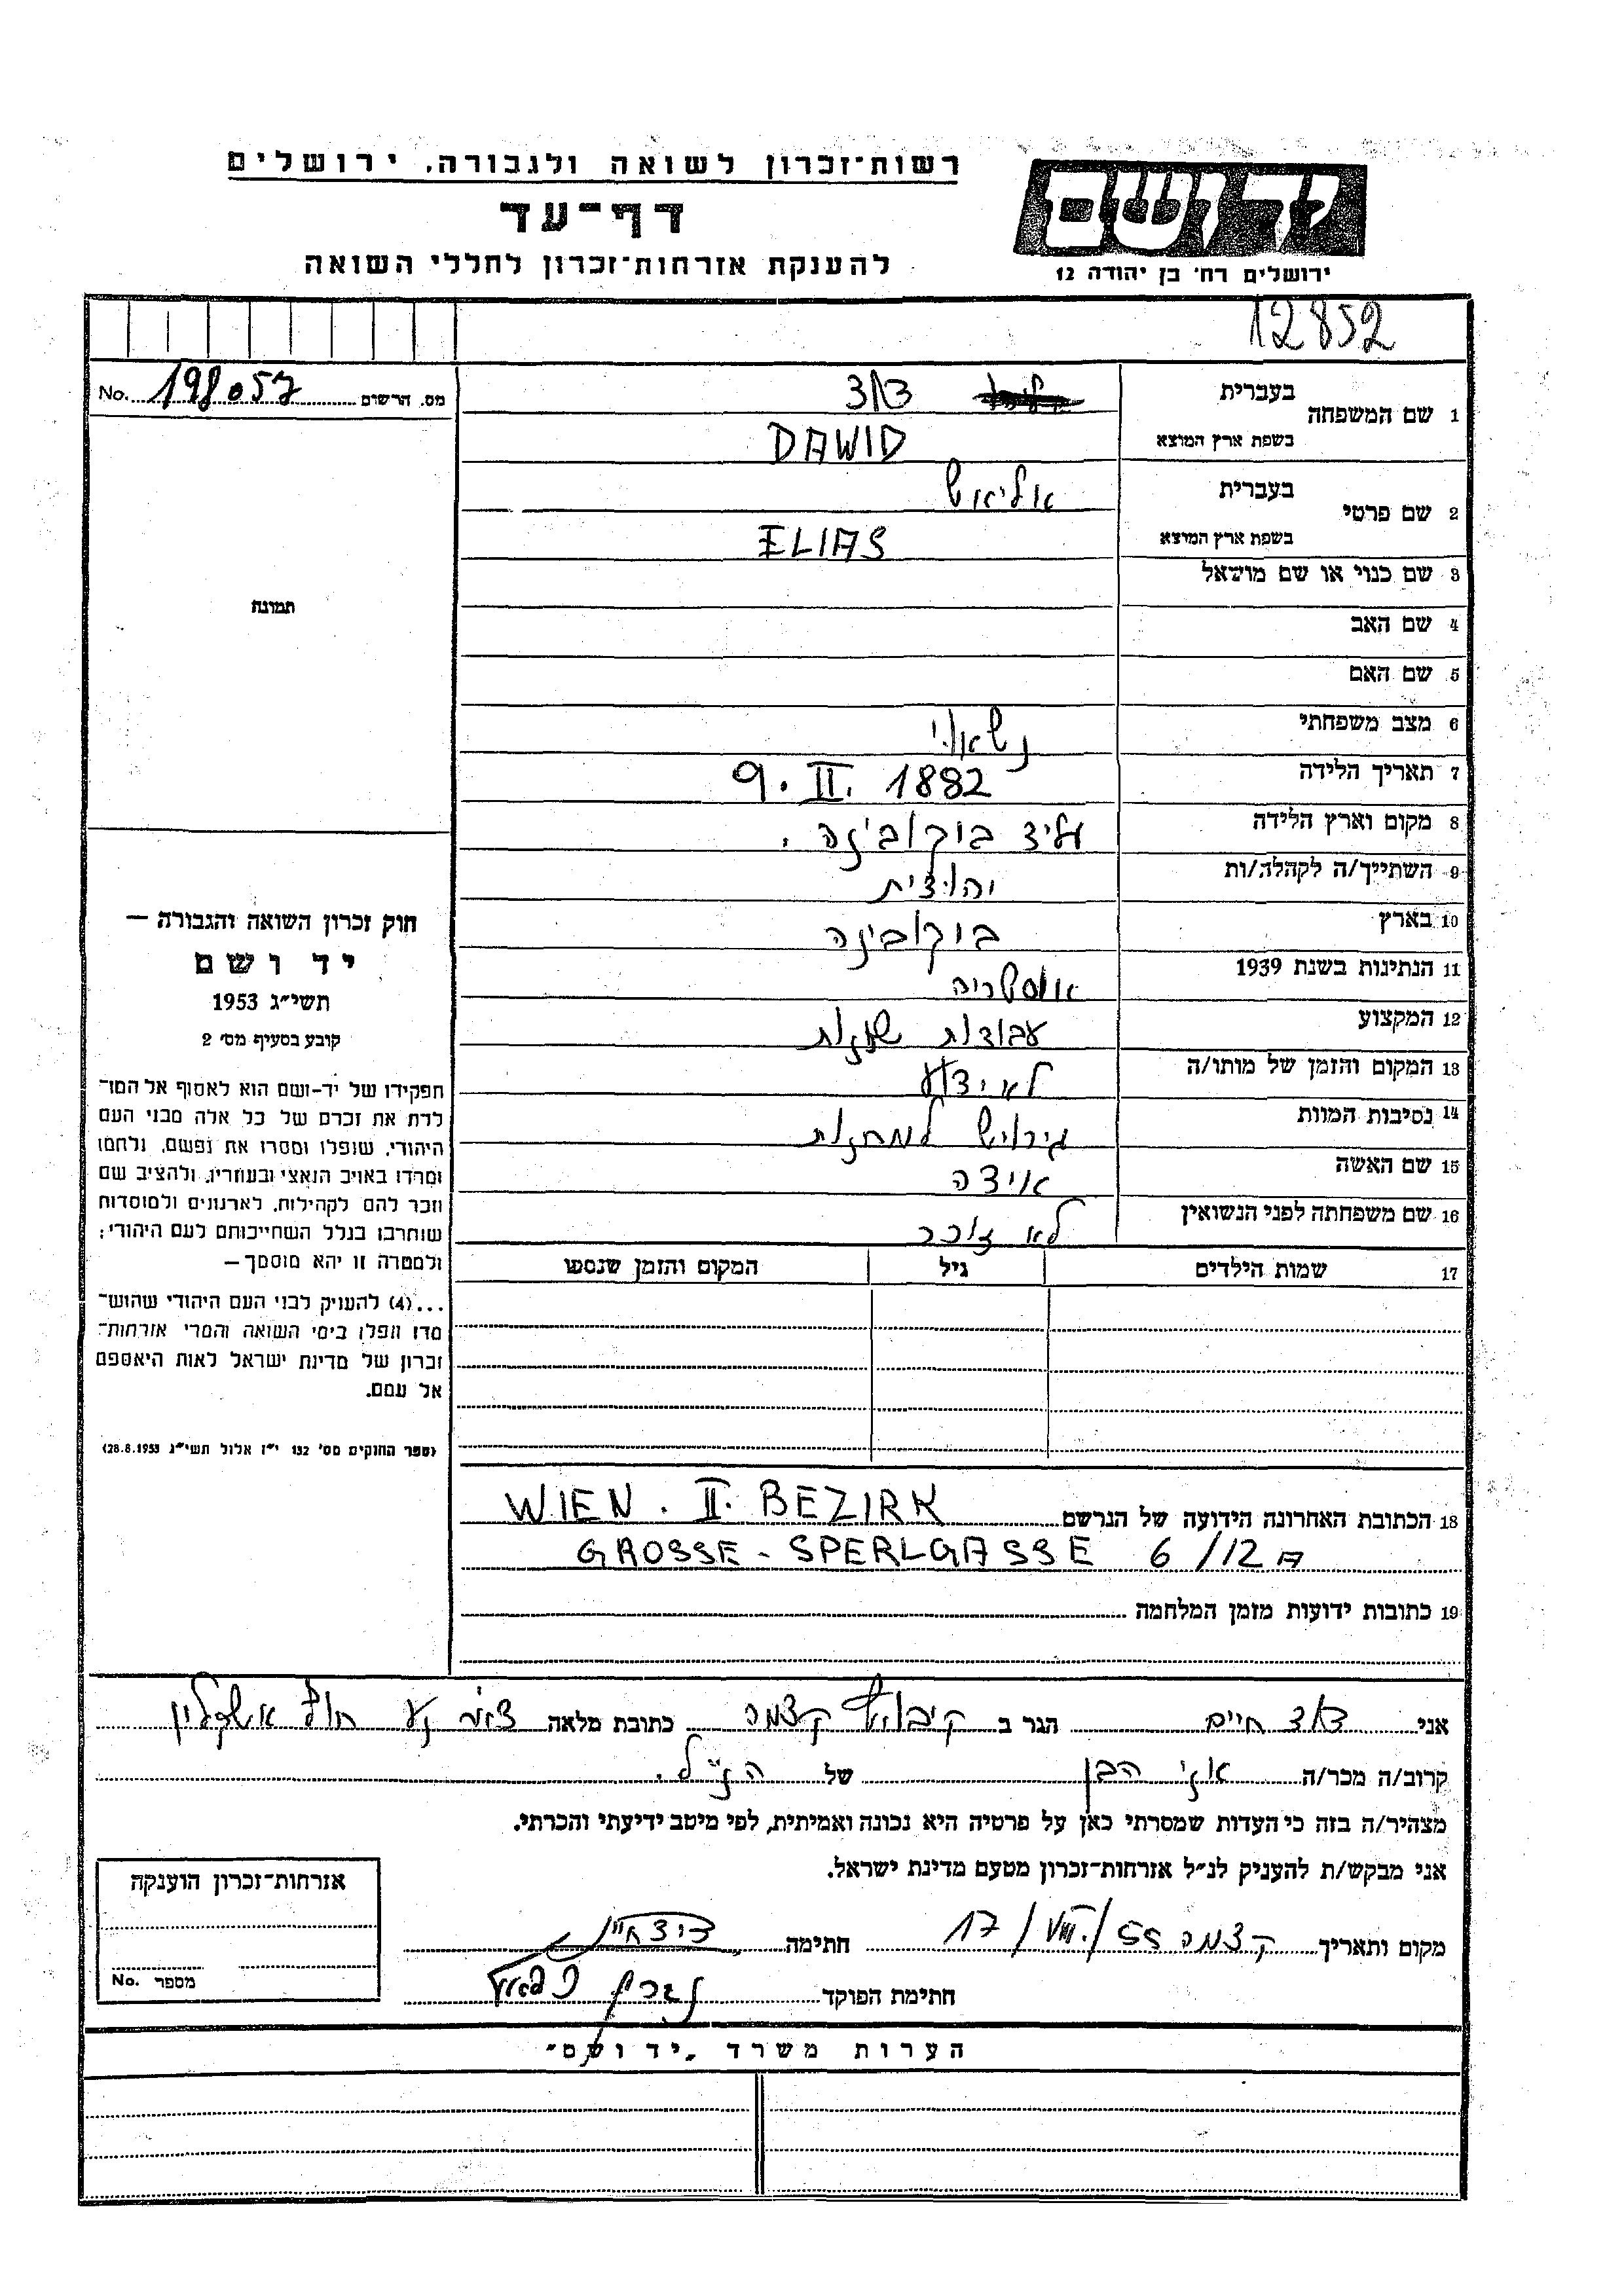 רשות-זכרון לשואה ולגבורה, ירושלים
דף-עד
להענקת אזרחות-זכרון לחללי השואה
יד ושם
ירושלים רח' בן יהודה 12
12852
מס. הרשום 198057 No.
1 שם המשפחה בעברית דוד
בשפת ארץ המוצא DAWID
2 שם פרטי בעברית אליאש
בשפת ארץ המוצא ELIAS
3 שם כנוי או שם מושאל
4 שם האב
5 שם האם
6 מצב משפחתי נשאוי
7 תאריך הלידה 9. II. 1882
8 מקום וארץ הלידה בוקובינה
9 השתייך/ה לקהלה/ות יהודית
10 בארץ בוקובינה
11 הנתינות בשנת 1939 אוסטריה
12 המקצוע עבודות שונות
13 המקום והזמן של מותו/ה לא ידוע
14 נסיבות המוות גירוש למחנות
15 שם האשה אידה
16 שם משפחתה לפני הנשואין לא זוכר
17 שמות הילדים גיל המקום והזמן שנספו
תמונה
חוק זכרון השואה והגבורה —
יד ושם
תשי"ג 1953
קובע בסעיף מס' 2
תפקידו של יד-ושם הוא לאסוף אל המו-
לדת את זכרם של כל אלה מבני העם
היהודי, שנפלו ומסרו את נפשם, נלחמו
ומרדו באויב הנאצי ובעוזריו, ולהציב שם
וזכר להם לקהילות, לארגונים ולמוסדות
שוחרבו בגלל השתייכותם לעם היהודי;
ולמטרה זו יהא מוסמך —
...(4) להעניק לבני העם היהודי שהוש-
מדו ונפלו בימי השואה והמרי אזרחות-
זכרון של מדינת ישראל לאות היאספם
אל עמם.
(ספר החוקים מס' 132 י"ז אלול תשי"ג 28.8.1953)
18 הכתובת האחרונה הידועה של הנרשם WIEN. II. BEZIRK
GROSSE - SPERLGASSE 6/12A
19 כתובות ידועות מזמן המלחמה
אני דוד חיים הגר ב קיבוץ כתובת מלאה דאר נע חוף אשקלון
קרוב/ה מכר/ה אני הבן של הנ"ל.
מצהיר/ה בזה כי העדות שמסרתי כאן על פרטיה היא נכונה ואמיתית, לפי מיטב ידיעתי והכרתי.
אני מבקש/ת להעניק לנ"ל אזרחות-זכרון מטעם מדינת ישראל.
מקום ותאריך 17/VIII./55 חתימה דוד חיים
חתימת הפוקד
אזרחות-זכרון הוענקה
מספר No.
הערות משרד "יד ושם"